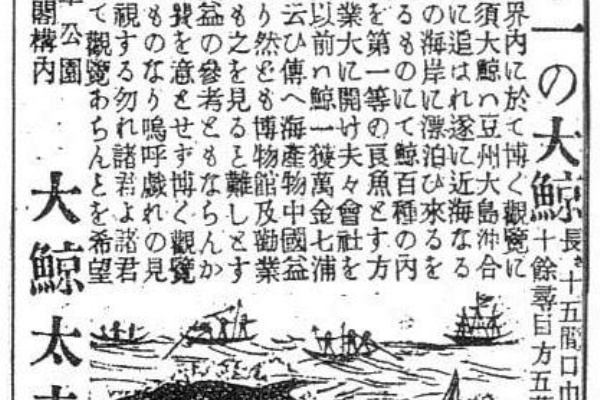 一の大鯨
長サ十五間口巾
十餘尋目方五萬
界内に於て博く觀覽に
須大鯨ハ豆州大島沖合
に追はれ遂に近海なる
の海岸に漂泊ひ來るを
るものにて鯨百種の内
を第一等の良魚とす方
業大に開け夫々會社を
以前ハ鯨一獲萬金七浦
云ひ傳へ海產物中國益
り然とも博物館及勸業
も之を見ると難しとす
益の參考ともならんか
費を意とせず博く觀覽
ものなり嗚呼戯れの見
視する勿れ諸君よ諸君
て觀覽あらんとを希望
公園
閣構内
大鯨太